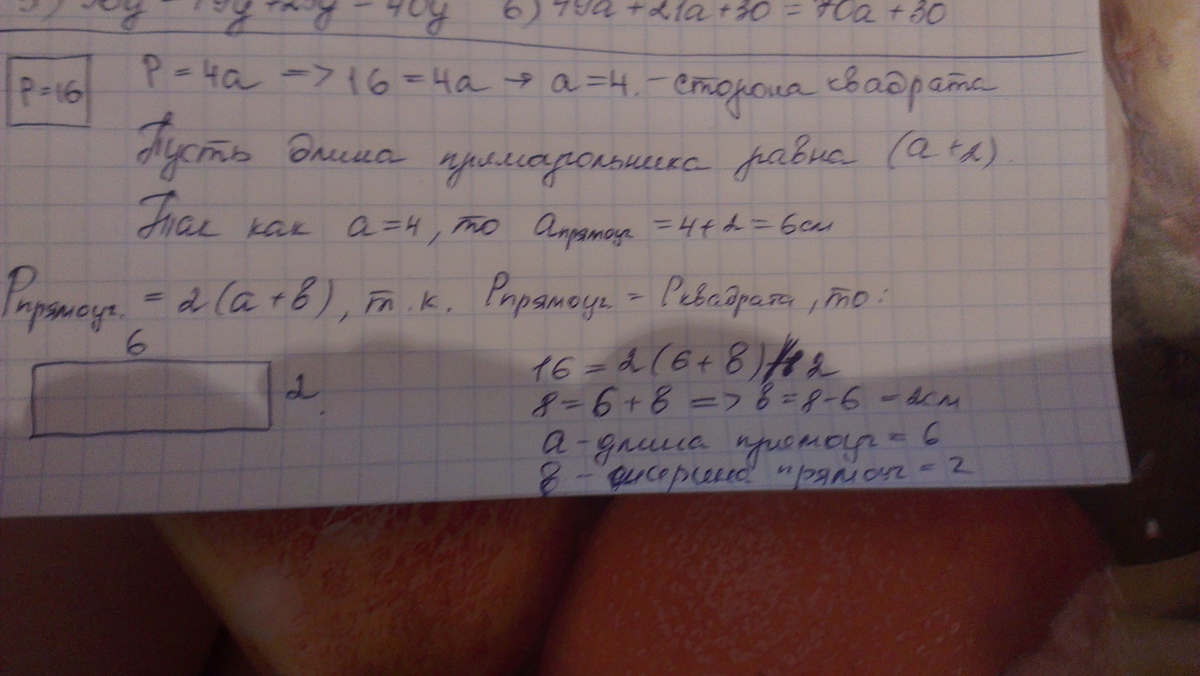 6) 49a + 21a + 30 = 70a + 30
P=16
P = 4a => 16 = 4a → a = 4. – сторона квадрата
Пусть длина прямоугольника равна (a + 2).
Так как a = 4, то a прямоуг = 4 + 2 = 6 см
P прямоуг. = 2 (a + в), т.к. P прямоуг. = P квадрата, то:
6
2.
16 = 2 (6 + в) 2
8 = 6 + в => в = 8 - 6 = 2 см
a – длина прямоуг = 6
в – ширина прямоуг = 2